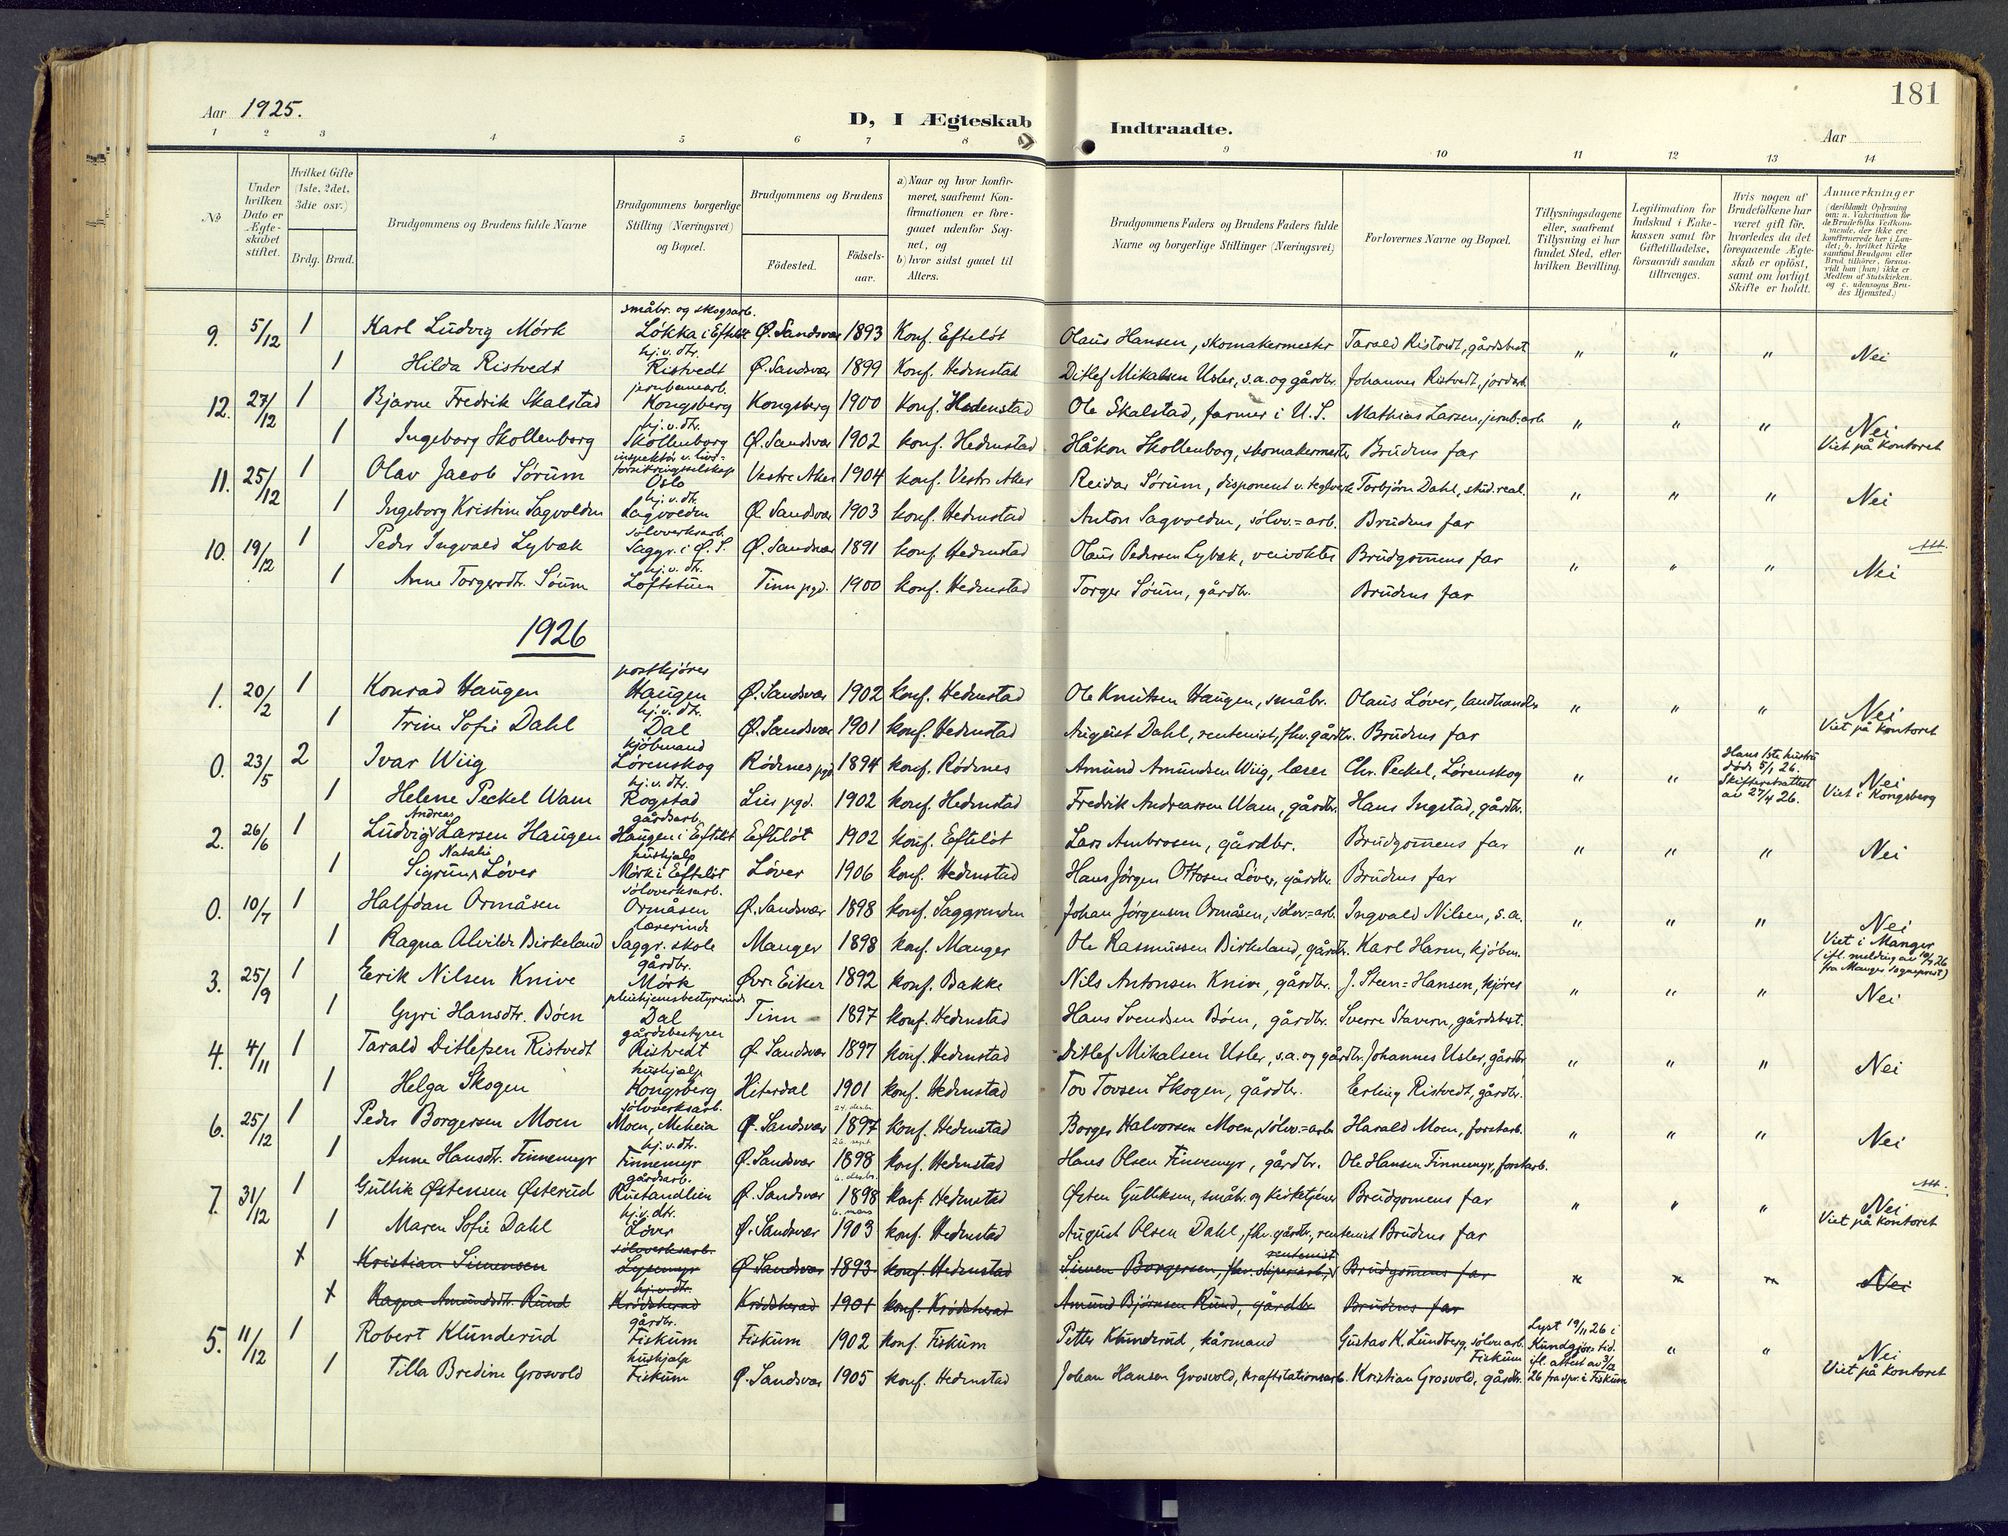 181
Aar 1925.
D, I Ægteskab Indtraadte.
Aar
1 2 3 4 5 6 7 8 9 10 11 12 13 14
No
Under hvilken Dato er Ægteskabet stiftet.
Hvilket Gifte (1ste, 2det, 3die osv.)
Brdg. Brud.
Brudgommens og Brudens fulde Navne
Brudgommens borgerlige Stilling (Næringsvei) og Bopæl.
Brudgommens og Brudens
Fødested.
Fødselsaar.
a) Naar og hvor konfirmeret, saafremt Konfirmationen er foregaaet udenfor Sognet, og
b) hvor sidst gaaet til Alters.
Brudgommens Faders og Brudens Faders fulde Navne og borgerlige Stillinger (Næringsvei)
Forlovernes Navne og Bopæl.
Tillysningsdagene eller, saafremt Tillysning ei har fundet Sted, efter hvilken Bevilling.
Legitimation for Indskud i Enkekassen samt for Giftetilladelse, forsaavidt saadan tiltrænges.
Hvis nogen af Brudefolkene har været gift før, hvorledes da det foregaaende Ægteskab er opløst, samt om lovligt Skifte er holdt.
Anmærkninger
(deriblandt Oplysning om: a. Vakcination for de Brudefolks Vedkommende, der ikke ere konfirmerede her i Landet; b. hvilket Kirkesamfund Brudgom eller Brud tilhører, forsaavidt han (hun) ikke er Medlem af Statskirken, og c. udensogns Brudes Hjemsted.)
småbr. og skogsarb.
9. 5/12 1 Karl Ludvig Mörk Løkka i Efteløt Ø. Sandsvær 1893 Konf. Efteløt Olaus Hansen, skomakermester Tarald Ristvedt, gårdsbest. " " " Nei
hj. v. dtr.
1 Hilda Ristvedt Ristvedt Ø. Sandsvær 1899 Konf. Hedenstad Ditlef Mikalsen Usler, s.a. og gårdbr. Johannes Ristvedt, jordarb.
jernbanearb.
12. 27/12 1 Bjarne Fredrik Skalstad Kongsberg Kongsberg 1900 Konf. Hedenstad Ole Skalstad, farmer i U.S. Mathias Larsen, jernb.arb. " " " Nei
Viet på kontoret
hj. v. dtr.
1 Ingeborg Skollenborg Skollenborg Ø. Sandsvær 1902 konf. Hedenstad Håkon Skollenborg, skomakermester Brudens far
inspektör v. livsforsikringsselskap
11. 25/12 1 Olav Jacob Sørum Oslo Vestre Aker 1904 konf. Vestre Aker Reidar Sørum, disponent v. teglverk Torbjørn Dahl, stud. real. " " " Nei
hj. v. dtr.
1 Ingeborg Kristine Sagvolden Sagvolden Ø. Sandsvær 1903 konf. Hedenstad Anton Sagvolden, sølvv.=arb. Brudens far
sølvverksarb.
10. 19/12 1 Peder Ingvald Lybæk Saggr. i Ø. S. Ø. Sandsvær 1891 konf. Hedenstad Olaus Pedersen Lybæk, veivokter Brudgommens far " " " Att. Nei
hj. v. dtr.
1 Anne Torgersdtr. Söum Loftstuen Tinn pgd. 1900 konf. Hedenstad Torger Söum, gårdbr. Brudens far
1926
postkjörer
1. 20/2 1 Konrad Haugen Haugen Ø. Sandsvær 1902 konf. Hedenstad Ole Knutsen Haugen, småbr. Olaus Løver, landhandler " " " Nei
Viet på kontoret
hj. v. dtr.
1 Trine Sofie Dahl Dal Ø. Sandsvær 1901 konf. Hedenstad August Dahl, rentenist, fhv. gårdbr. Brudens far
kjøbmand
0. 23/5 2 Ivar Wiig Lørenskog Rødenes pgd 1894 konf. Rødenes Amund Amundsen Wiig, læser Chr. Peckel, Lørenskog " " Hans 1ste hustru døde 5/1 26. Skifteretsattest av 27/4 26. Nei
Viet i Kongsberg
hj. v. dtr.
1 Helene Peckel Wam Rogstad Lier pgd. 1902 konf. Hedenstad Fredrik Andreassen Wam, gårdbr. Hans Ingstad, gårdbr.
Andreas gårdsarb.
2. 26/6 1 Ludvig Larsen Haugen Haugen i Efteløt Efteløt 1902 konf. Efteløt Lars Ambrosen, gårdbr. Brudgommens far " " " Nei
Natalie hushjelp
1 Sigrun Løver Mörk i Efteløt Løver 1906 konf. Hedenstad Hans Jörgen Ottosen Löver, gårdbr. Brudens far
sølvverksarb.
0. 10/7 1 Halfdan Ormåsen Ormåsen Ø. Sandsvær 1898 konf. Saggrenden Johan Jörgensen Ormåsen, sölvv.=arb. Ingvald Nilsen, s.a. " " " Nei
Viet i Manger
(ifl. melding av 19/7 26 fra Manger sogneprest)
lærerinde
1 Ragna Alvilde Birkeland Saggr. skole Manger 1898 konf. Manger Ole Rasmussen Birkeland, gårdbr. Karl Harm, kjöbm.
gårdbr.
3. 25/9 1 Eerik Nilsen Knive Mörk Øvre Eiker 1892 konf. Bakke Nils Antonsen Knive, gårdbr. J. Steen=Hansen, kjörer " " " Nei
pleiehjemsbestyrerinde
1 Gyri Hansdtr. Böen Dal Tinn 1897 konf. Hedenstad Hans Svendsen Böen, gårdbr. Sverre Stavern, gårdsbest.
gårdsbestyrer
4. 4/11 1 Tarald Ditlefsen Ristvedt Ristvedt Ø. Sandsvær 1897 konf. Hedenstad Ditlef Mikalsen Usler, s.a. og gårdbr. Johannes Usler, gårdbr. " " " Nei
hushjelp
1 Helga Skogen Kongsberg Hiterdal 1901 konf. Hedenstad Tov Tovsen Skogen, gårdbr. Erling Ristvedt, gårdbr.
sølvverksarb. 24. desbr.
6. 25/12 1 Peder Borgersen Moen Moen, Meheia Ø. Sandsvær 1897 konf. Hedenstad Borger Halvorsen Moen, sølvv.=arb. Harald Moen, forstarb. " " " Nei
hj. v. dtr. 26. sept.
1 Anne Hansdtr. Finnemyr Finnemyr Ø. Sandsvær 1898 konf. Hedenstad Hans Olsen Finnemyr, gårdbr. Ole Hansen Finnemyr, forstarb.
gårdsarb. 6. desbr.
7. 31/12 1 Gullik Østensen Østerud Rustandlien Ø. Sandsvær 1898 konf. Hedenstad Østen Gulliksen, småbr. og kirketjener Brudgomens far " " " Att. Nei
Viet på kontoret
hj. v. dtr. 6. mars
1 Maren Sofie Dahl Löver Ø. Sandsvær 1903 konf. Hedenstad August Olsen Dahl, fhv. gårdbr., rentenist Brudens far
sølvverksarb. rentenist
Kristian Simensen Ø. Sandsvær 1893 konf. Hedenstad Simen Borgersen, fhv. Brudgommens far " " " Nei
hj. v. dtr.
Ragna Amundsdtr. Rund Krødsherad Krødsherad 1901 konf. Krødsherad Amund Bjørnsen Rund, gårdbr Brudens far
gårdbr.
5. 11/12 1 Robert Klunderud Fiskum Fiskum 1902 konf. Fiskum Petter Klunderud, kårmand Gustav K. Lundberg, sølvv.arb. Fiskum Lyst 19/11 26 i Kundgjörs.tid. ifl. attest av 3/12 26 fra spr. i Fiskum " " Nei
Viet på kontoret
hushjelp
1 Tilla Bredine Grosvold Fiskum Ø. Sandsvær 1905 konf. Hedenstad Johan Hansen Grosvold, kraftstationsarb. Kristian Grosvold, gårdbr.